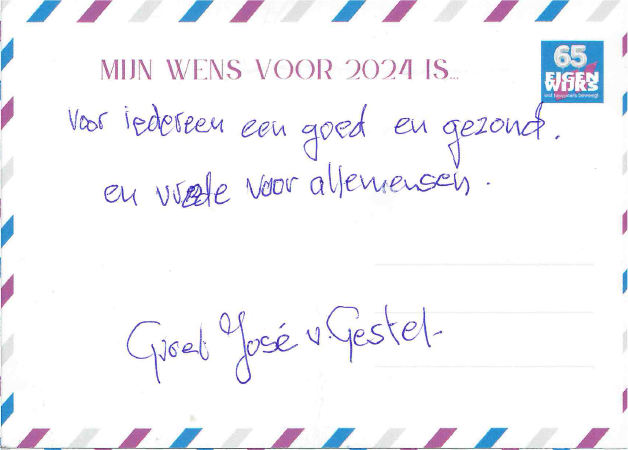 MIJN WENS VOOR 2024 IS...
65
EIGEN
WIJKS
Voor iedereen een goed en gezond.
en vrede voor allemensen.
Groet José v. Gestel